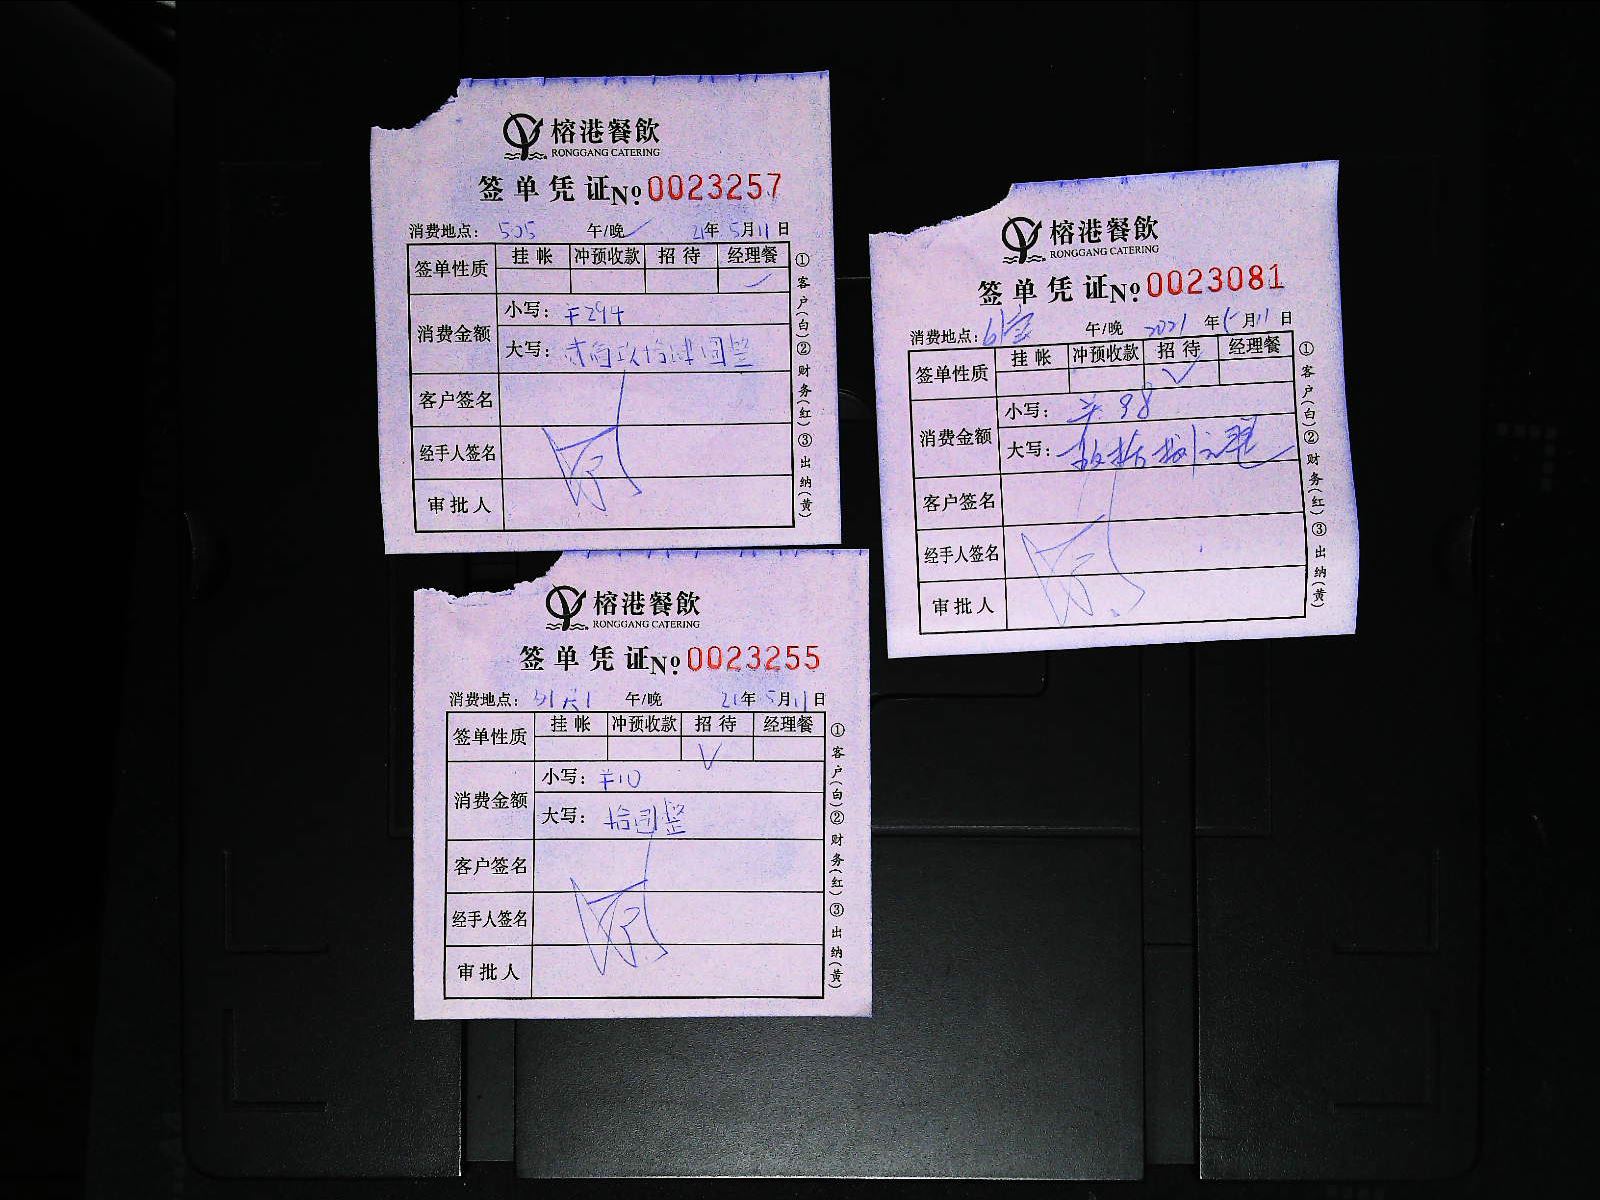 榕港餐飲
RONGGANG CATERING
签单凭证№0023257
消费地点：505 午/晚 21年5月11日
签单性质 挂帐 冲预收款 招待 经理餐
消费金额 小写：¥294
大写：贰佰玖拾肆圆整
客户签名
经手人签名
审批人
①客户(白)②财务(红)③出纳(黄)
榕港餐飲
RONGGANG CATERING
签单凭证№0023081
消费地点： 午/晚 2021年5月11日
签单性质 挂帐 冲预收款 招待 经理餐
消费金额 小写：¥98
大写：玖拾捌元整
客户签名
经手人签名
审批人
①客户(白)②财务(红)③出纳(黄)
榕港餐飲
RONGGANG CATERING
签单凭证№0023255
消费地点： 午/晚 21年5月11日
签单性质 挂帐 冲预收款 招待 经理餐
消费金额 小写：¥10
大写：拾圆整
客户签名
经手人签名
审批人
①客户(白)②财务(红)③出纳(黄)